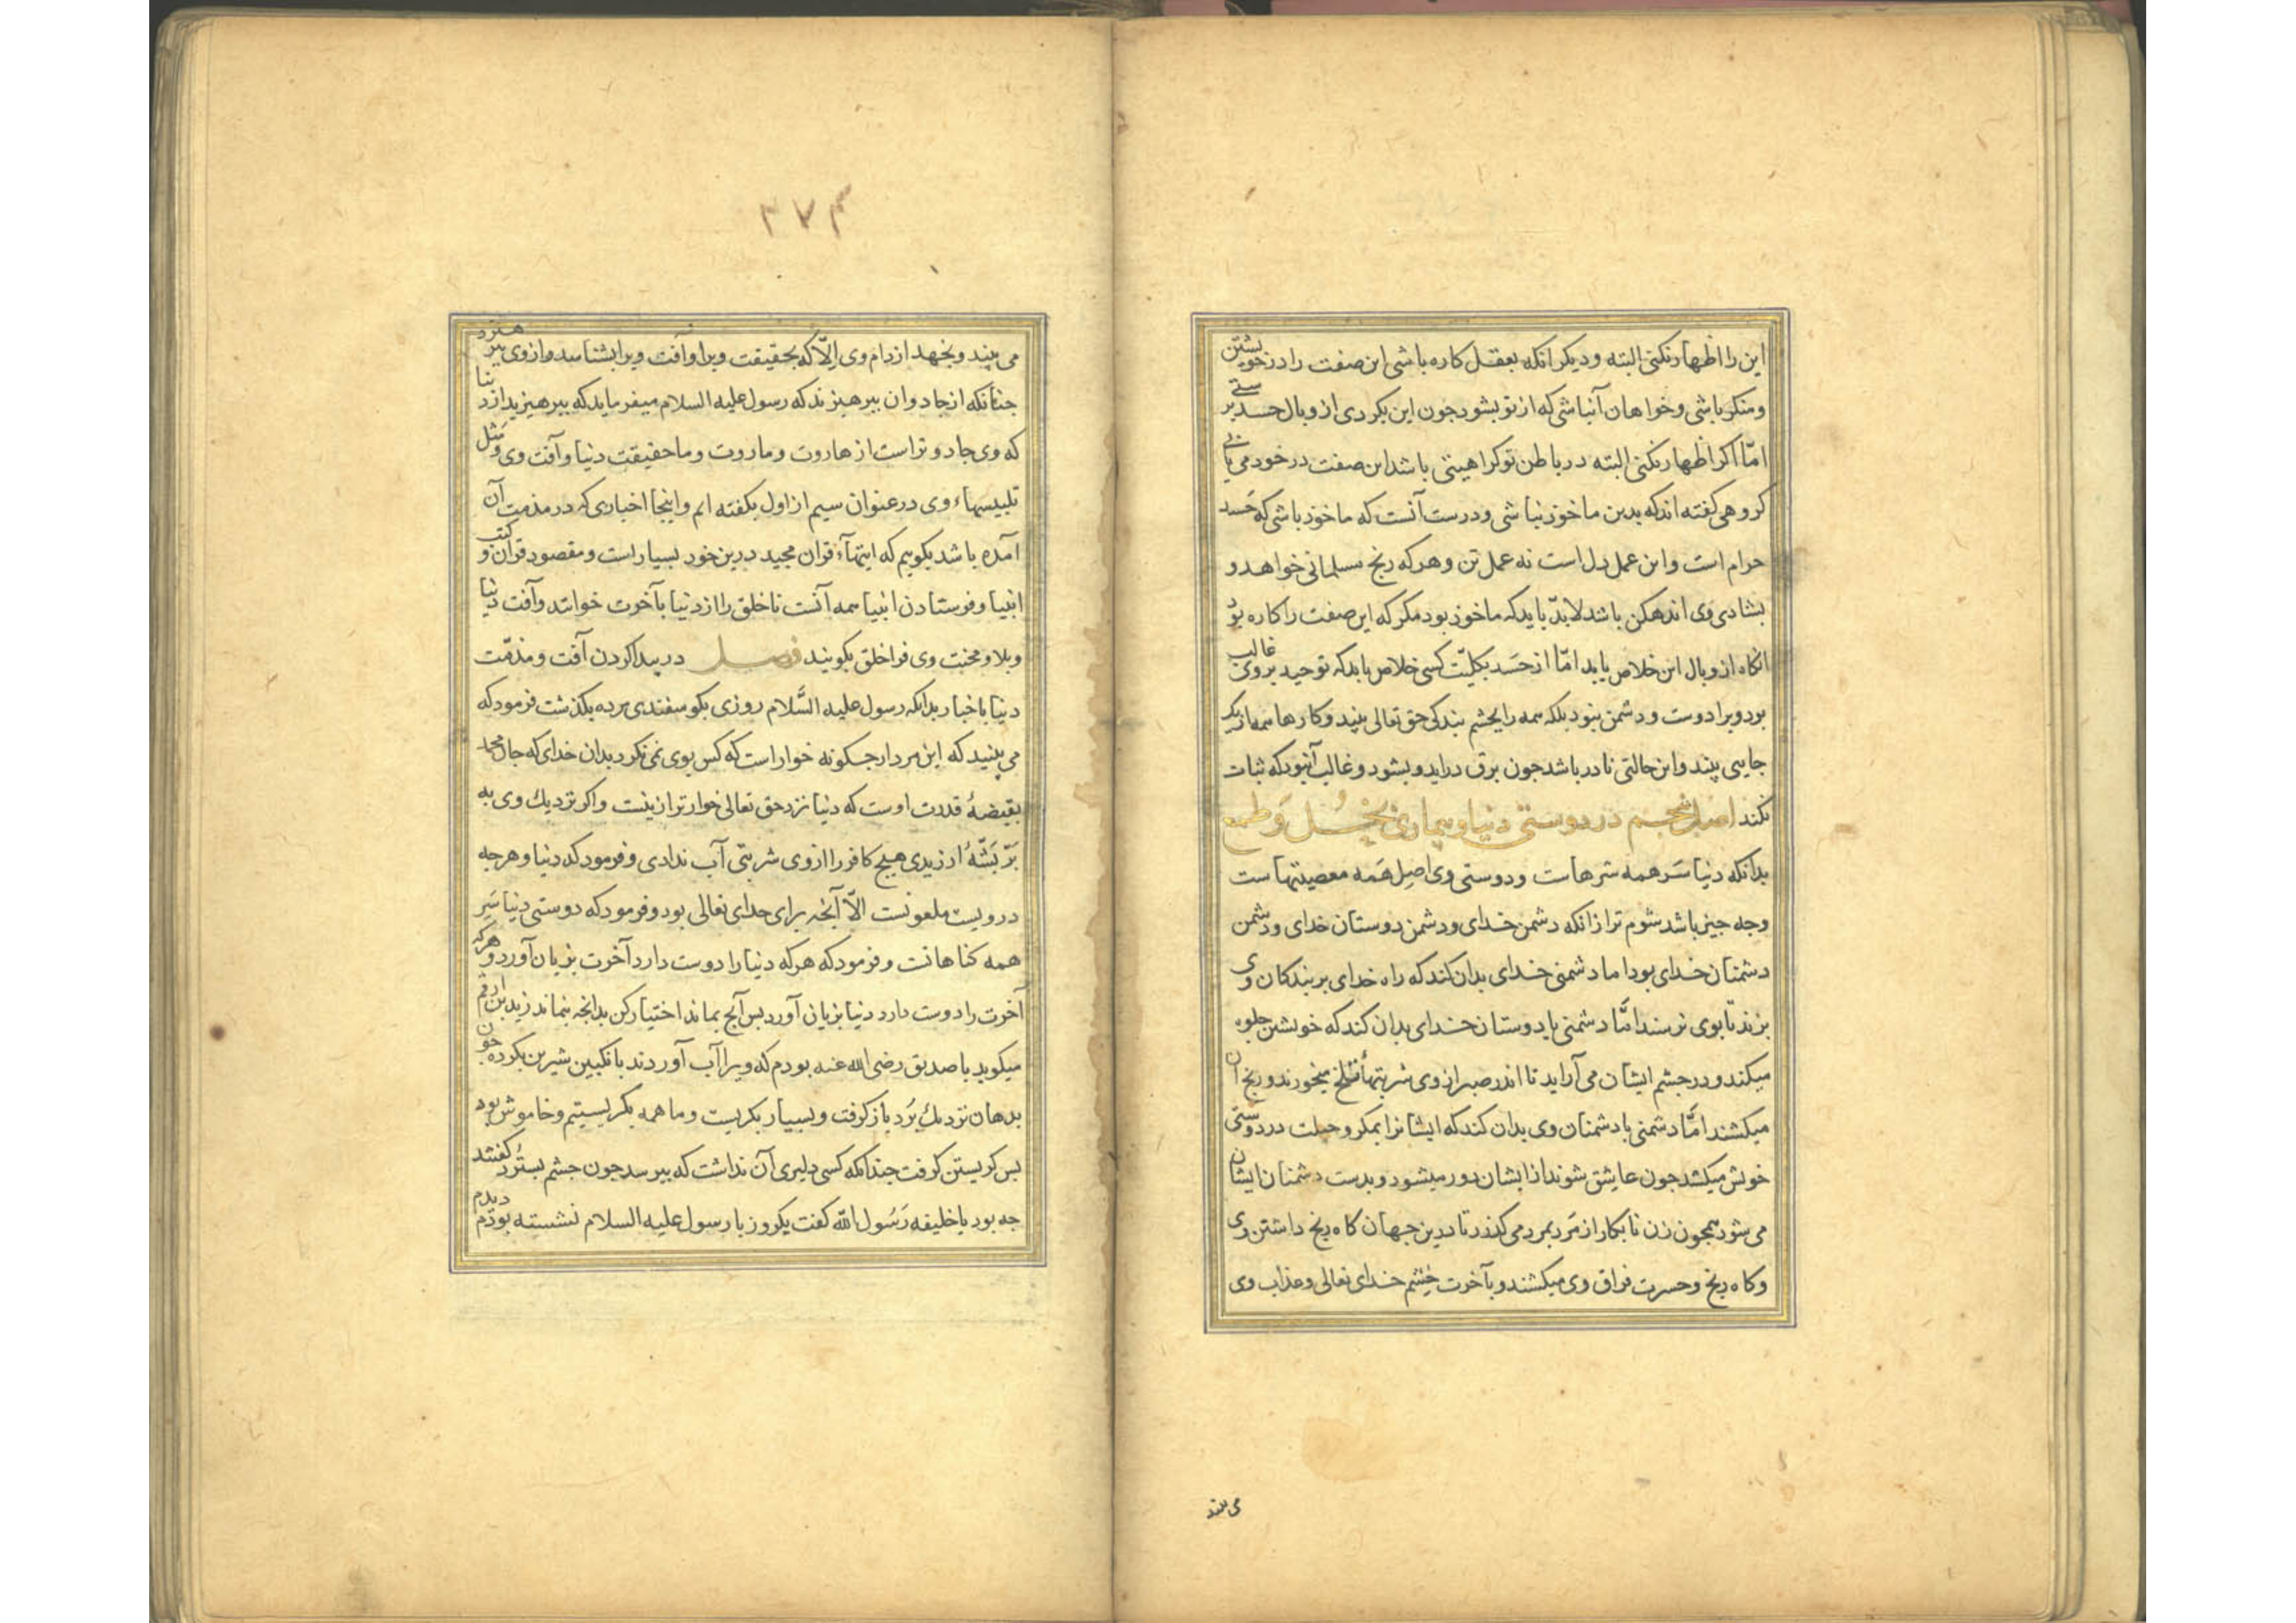 این را اظهار نکنی البته و دیکر انکه بعقل کاره باشی این صفت را در خویشتن
و منکر باشی و خواهان آنباشی که از تو بشود جون این بکردی از وبال حسد برستی
امّا اکر اظهار نکنی البته در باطن تو کراهیتی باشد این صفت در خود می یابی
کروهی کفته اند که بدین ماخوذ نباشی و درست آنست که ماخوذ باشی که حَسد
حرام است و این عمل دل است نه عمل تن و هر که رنج مسلمانی خواهد و
بشادی وی اندهکن باشد لابدّ باید که ماخوذ بود مکر که این صفت را کاره بود
انکاه از وبال این خلاص یابد امّا از حَسَد بکلیّت کسی خلاص یابد که توحید بر وی غالب
بود و یرا دوست و دشمن نبود بلکه همه را بچشم بندکی حق تعالی بیند و کارها همه از یک
جایی بیند و این حالتی نادر باشد جون برق در آید و بشود و غالب آنبود که ثبات
نکند اصل پنجم در دوستی دنیا و بیماری بُخل وَ طمع
بدانکه دنیا سَر همه شرهاست و دوستی وی اصِل هَمه معصیتهاست
وجه جیز باشد شوم تر از انکه دشمن خدای و دشمن دوستان خدای و دشمن
دشمنان خدای بود اما دشمنی خدای بدان کند که راه خدای بر بندکان وی
بزند تا بوی نرسند امَّا دشمنی با دوستان خدای بدان کند که خویشتن جلوه
میکند و در جشم ایشان می آراید تا اندر صبر از وی شربتهاء تلخ میخورند و رنج آن
میکشند امَّا دشمنی با دشمنان وی بدان کند که ایشانرا بمکر و حیلت در دوستی
خویش میکشد جون عاشق شوند از ایشان دور میشود و بدست دشمنان ایشان
می شود همجون زن نابکار از مَرد بمرد می کذرد تا درین جهان کاه رنج داشتن وی
و کاه رنج و حسرت فراق وی میکشند و بآخرت خشم خدای تعالی و عذاب وی
می بیند
۲۷۳
می بینند و نجهد از دام وی اِلّا که بحقیقت ویرا و آفت ویرا بشناسد و از وی بپرهیزد
جنانکه از جادوان ببرهیزند که رسول علیه السلام میفرماید که ببرهیزید از دنیا
که وی جادوتر است از هاروت و ماروت و ما حقیقت دنیا و آفت وی و مَثل
تلبیسهاء وی در عنوان سیم از اول بکفته ایم و اینجا اخباری که در مذمت آن
آمده باشد بکوییم که ایتهآء قران مجید درین خود بسیار است و مقصود قران و کتب
انبیا و فرستادن انبیا همه آنست تا خلق را از دنیا بآخرت خوانند و آفت دنیا
و بلا و محنت وی فرا خلق بکویند فصل در پیدا کردن آفت و مذمّت
دنیا باخبار بدانکه رسول علیه السَّلام روزی بکوسفندی مرده بکذشت فرمود که
می بینید که این مردار جکونه خوار است که کس بوی نمی نکرد بدان خدای که جان محمد
بقبضهٔ قدرت اوست که دنیا نزد حق تعالی خوارتر ازینست و اکر نزدیك وی به
پَرّ بَشّهٔ ارزیدی هیچ کافر را ازوی شربتی آب ندادی و فرمود که دنیا و هرجه
درویست ملعونست الاّ آنجه برای خدای تعالی بود و فرمود که دوستی دنیا سَرِ
همه کناهانست و فرمود که هرکه دنیا را دوست دارد آخرت بزیان آورد و هرکه
آخرت را دوست دارد دنیا بزیان آورد بس آنج بماند اختیار کن بدانجه نماند زید بن ارقم
میکوید با صدیق رضی الله عنه بودم که ویرا آب آوردند بانکبین شیرین بکرده جون
بدهان نزدیك بَرد باز کرفت و بسیار بکریست و ما همه بکریستیم و خاموش بود
بس کریستن کرفت جندانکه کسی دلیری آن نداشت که ببرسد جون جشم بسترد کفتند
جه بود یا خلیفه رَسُول الله کفت یکروز با رسول علیه السلام نشسته بودم دیدم